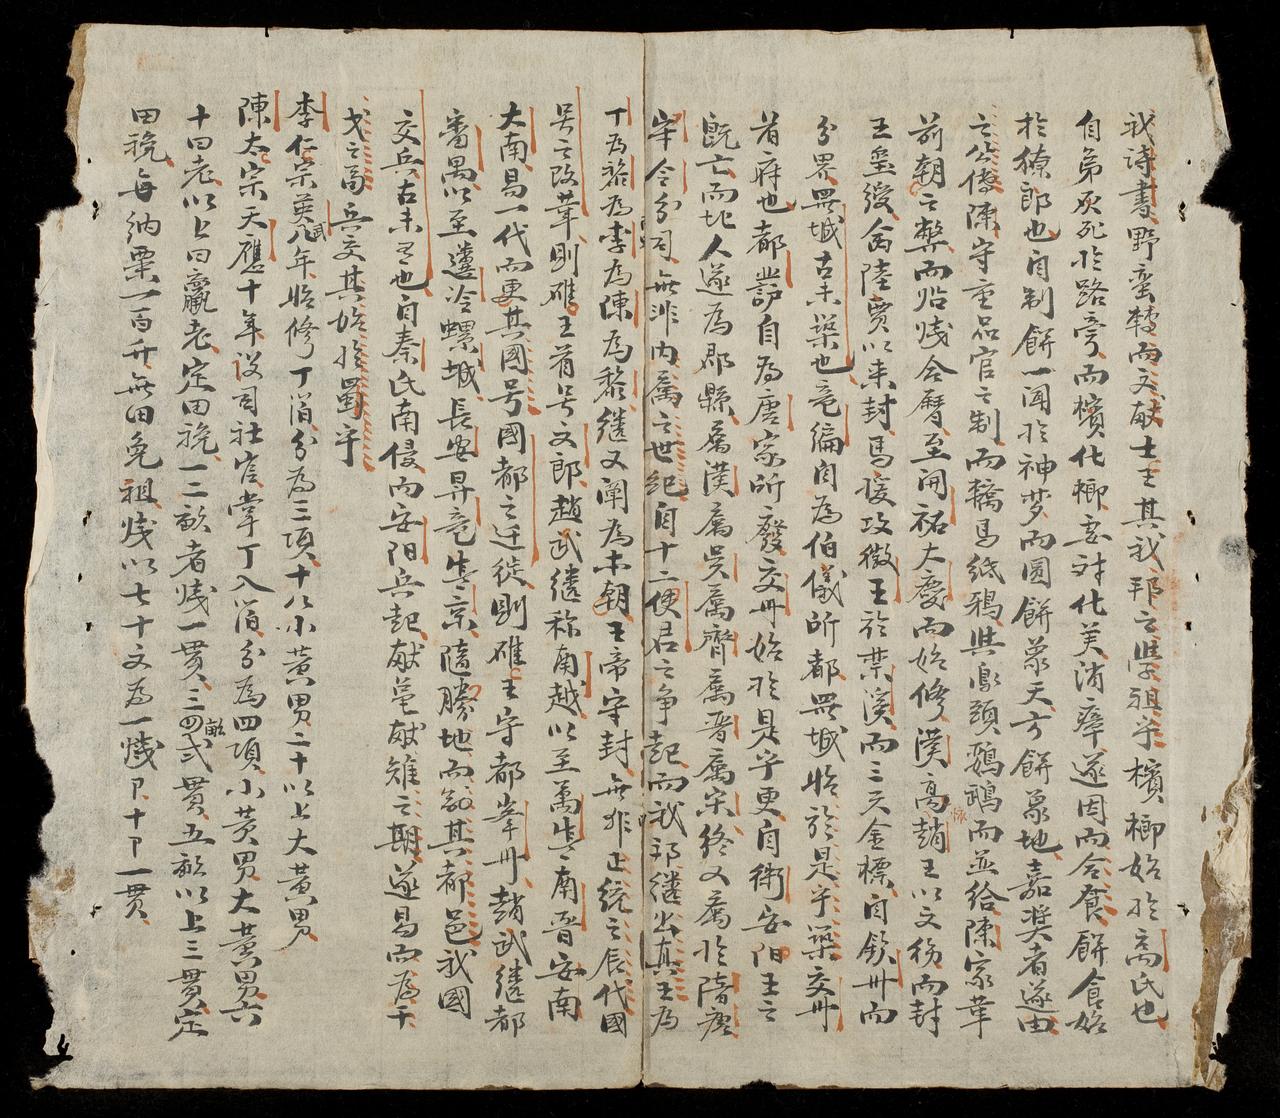 我詩書野蛮轉而文献士王其我邦之學祖乎檳榔始於高氏也
自第灰死於路旁而檳化榔妻対化美消瘴遂因而合食餅食始
於獠郎也自制餅一聞於神梦而圓餅象天方餅象地嘉奬者遂由
之公傳陳守重品官之制而轎馬紙鴉與鳥頭鸚鵡而並給陳家革
前朝之弊而始修陰陽合曆至開祐大慶而始修漢高趙王以文物而封
王璽綬禽陸賈以来封馬援攻徵王於禁溪而三尺金標自欽州而
分界無城古未築也竜編自為伯儀所都無城始於是乎築交州
者府也都護自為唐家所廢交州始於是乎更自衙安阳王之
既亡而地人遂為郡縣屬漢屬吴屬齊屬晋屬宋終又屬於隋唐
年令分司無非内屬之世紀自十二使君之争起而我邦繼出真王為
丁為黎為李為陳為黎継又閏為末朝王帝守封無非正統之辰代國
号之改革則雄王着号文郎趙武継称南越以至萬春南晋安南
大南易一代而更其國号國都之迁徙則雄王守都峯州趙武継都
番禺以至邊冷螺城長安昇竜生京隨勝地而設其都邑我國
交兵古未有也自秦氏南侵而安阳兵起献亀献雉之期遂易而為干
戈之局兵交其始於蜀乎
李仁宗英武八年始修丁簿分為三項十八小黄男二十以上大黄男
陳太宗天應十年设司社官掌丁入簿分為四項小黄男大黄男六
十曰老以上曰癃老定田税一二畝者残一貫三四畝弍貫五畝以上三貫定
田税每纳粟一百升無田免祖残以七十文為一残卩十卩一貫